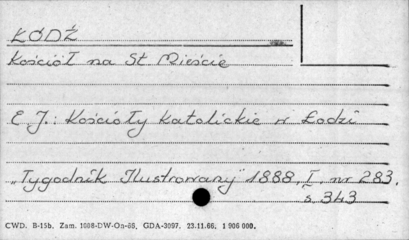 ŁÓDŹ
Kościół na St Mieście
E. J.: Kościoły katolickie w Łodzi
„Tygodnik Ilustrowany" 1888, I, nr 283,
s. 343
CWD. B-15b. Zam. 1608-DW-On-66, GDA-3097. 23.11.66. 1 906 000.